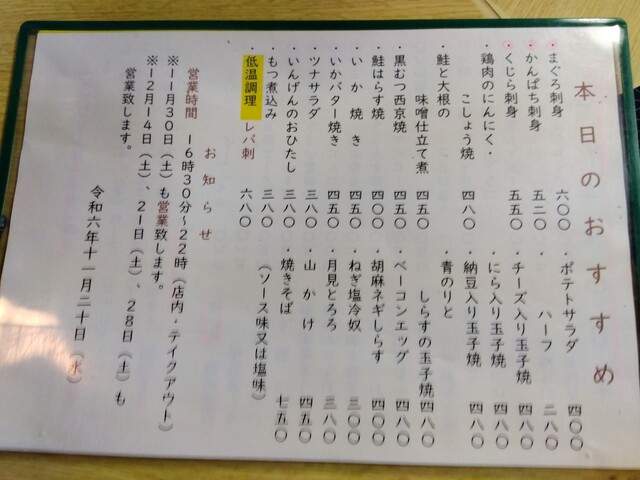 本日のおすすめ
・まぐろ刺身 六〇〇
・かんぱち刺身 五二〇
・くじら刺身 五五〇
・鶏肉のにんにく・
こしょう焼 四八〇
・鮭と大根の
味噌仕立て煮 四五〇
・黒むつ西京焼 四五〇
・鮭はらす焼 四〇〇
・いか焼き 四五〇
・いかバター焼き 四五〇
・ツナサラダ 三八〇
・いんげんのおひたし 三八〇
・もつ煮込み 三八〇
・低温調理 レバ刺 六八〇
・ポテトサラダ 四〇〇
・ハーフ 二八〇
・チーズ入り玉子焼 四八〇
・にら入り玉子焼 四八〇
・納豆入り玉子焼 四八〇
・青のりと
しらすの玉子焼 四八〇
・ベーコンエッグ 四八〇
・胡麻ネギしらす 四〇〇
・ねぎ塩冷奴 三〇〇
・月見とろろ 三八〇
・山かけ 四五〇
・焼きそば 七五〇
(ソース味又は塩味)
お知らせ
営業時間 16時30分~22時(店内・テイクアウト)
※11月30日(土)も営業致します。
※12月14日(土)、21日(土)、28日(土)も
営業致します。
令和六年十一月二十日(水)